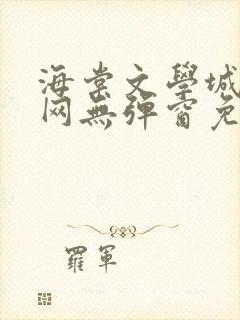 海棠文學城
网無彈窗免
羅軍